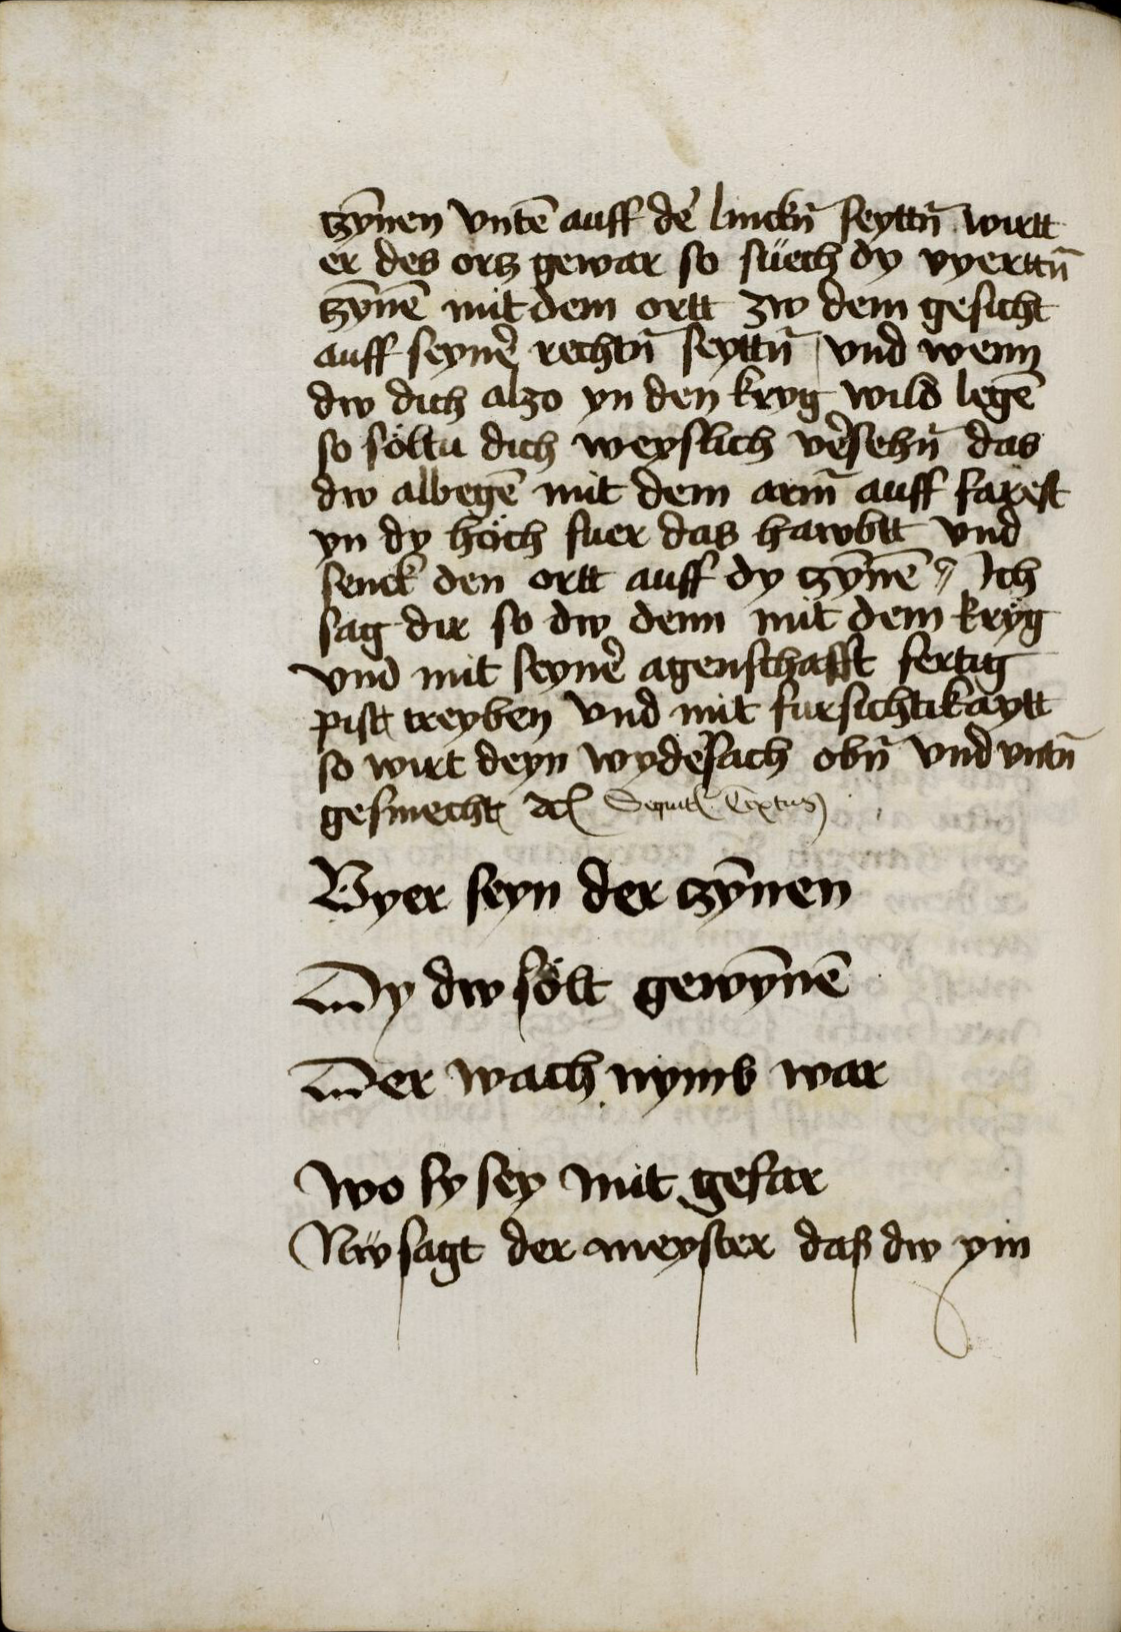 czȳnen vntē auff de᷑ linckñ seyttñ wirtt
er des ortz gewar so süech dy vyerttñ
czȳnē mit dem ortt zw dem gesicht
auff seyne᷑ rechtñ seyttñ vnd wenn
dw dich alzo yn den kryg wild legē
so söltu dich weyslich ve᷑sehñ das
dw albegē mit dem arm̄ auff farest
yn dy höch fuer das hawbtt vnd
senck den ortt auff dy czȳnē Ich
sag dir so dw denn mit dem kryg
vnd mit seyne᷑ agenschafft fertig
pist treyben vnd mit fursichtikaytt
so wirt deyn wyde᷑sach obñ vnd vntñ
gesmecht ⁊cͣ Sequit᷑ Textus
Vyer seyn der czȳnen
Dy dw sölt gewȳnē
Der wach nymb war
wo sy sey mit gefar
Nẅ sagt der meyster daß dw ym